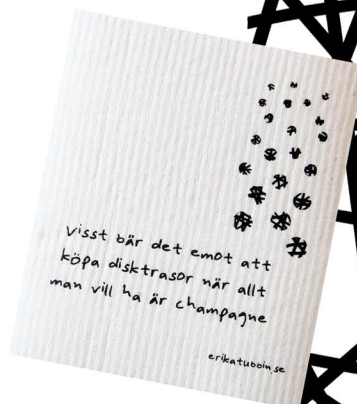 visst bär det emot att
köpa disktrasor när allt
man vill ha är champagne
erikatubbin.se